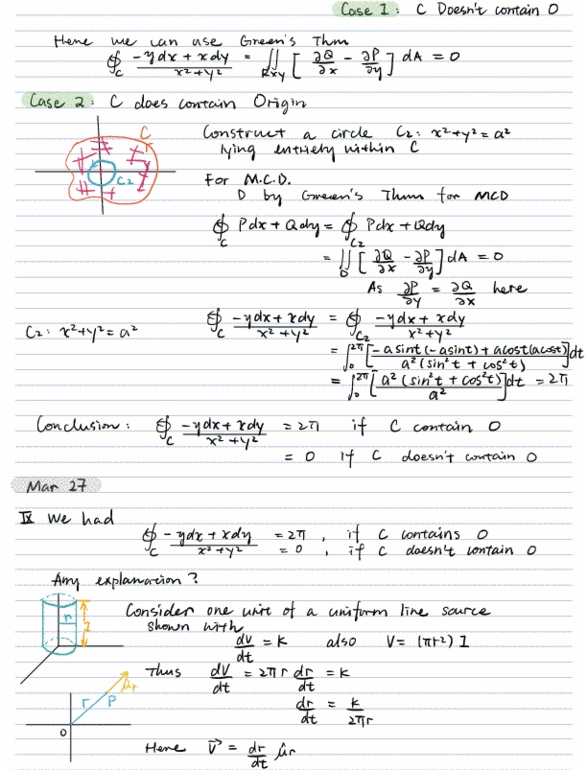 Case 1: C Doesn't contain O
Here we can use Green's Thm
∮_C (-ydx + xdy)/(x²+y²) = ∬_Rxy [∂Q/∂x - ∂P/∂y] dA = 0
Case 2: C does contain Origin
C
C2
Construct a circle C2: x²+y² = a²
lying entirely within C
For M.C.D.
D by Green's Thm for MCD
∮_C Pdx + Qdy = ∮_C2 Pdx + Qdy
= ∬_D [∂Q/∂x - ∂P/∂y] dA = 0
As ∂P/∂y = ∂Q/∂x here
C2: x²+y² = a²
∮_C (-ydx + xdy)/(x²+y²) = ∮_C2 (-ydx + xdy)/(x²+y²)
= ∫_0^2π [(-a sint(-a sint) + a cost(a cost))/(a²(sin²t + cos²t))] dt
= ∫_0^2π [a²(sin²t + cos²t)/a²] dt = 2π
Conclusion: ∮_C (-ydx + xdy)/(x²+y²) = 2π if C contain O
= 0 if C doesn't contain O
Mar 27
IX We had
∮_C (-ydx + xdy)/(x²+y²) = 2π, if C contains O
= 0, if C doesn't contain O
Any explanation?
r
1
Consider one unit of a uniform line source
shown with
dV/dt = k also V = (πr²) 1
Thus dV/dt = 2πr dr/dt = k
dr/dt = k/2πr
r P
μ̂r
O
Here V⃗ = dr/dt μ̂r